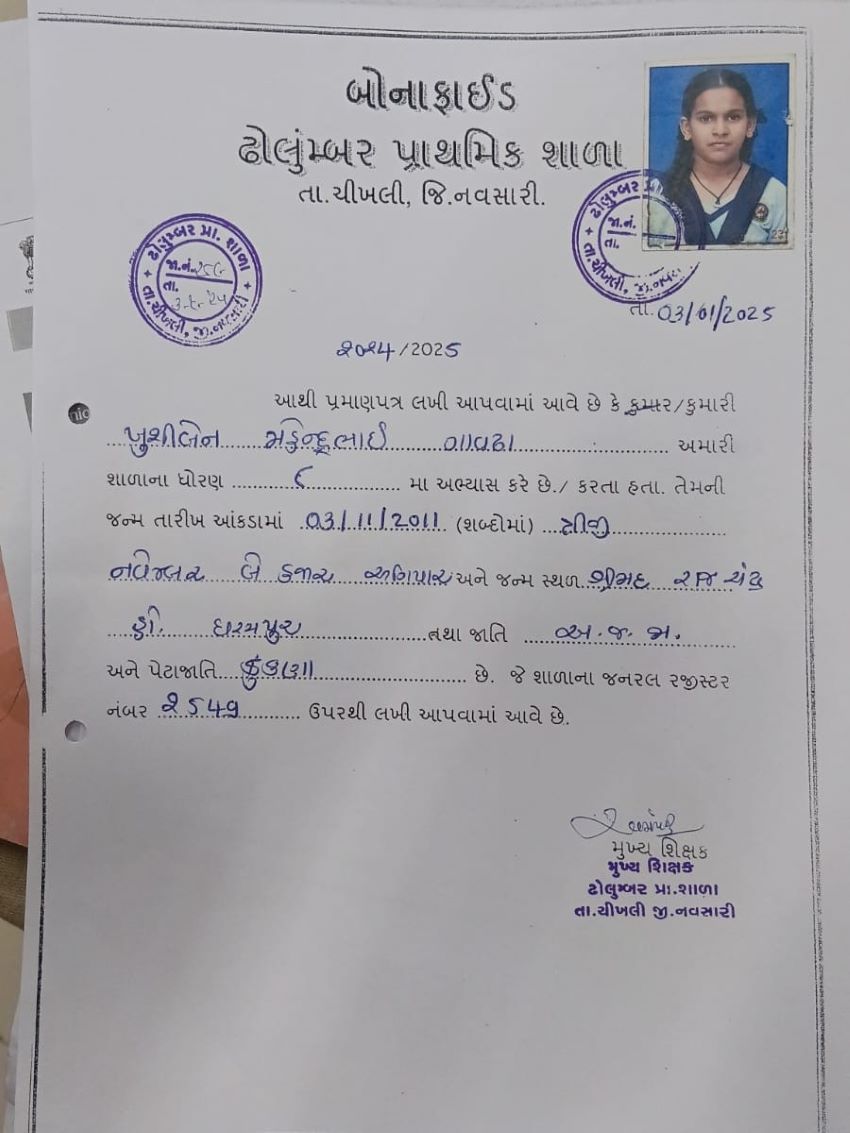 બોનાફાઈડ
ઢોલુંમ્બર પ્રાથમિક શાળા
તા.ચીખલી, જિ.નવસારી.
ઢોલુમ્બર પ્રા. શાળા
જા.નં.
તા.
તા.ચીખલી, જી.નવસારી
ઢોલુમ્બર પ્રા
જા.નં.
તા.
તા.ચીખલી, જી.નવસા
તા. 03/01/2025
૨૦૨૪/2025
આથી પ્રમાણપત્ર લખી આપવામાં આવે છે કે કુમાર/કુમારી
ખુશીબેન મહેન્દ્રભાઈ ગાવઢા અમારી
શાળાના ધોરણ ૮ મા અભ્યાસ કરે છે./ કરતા હતા. તેમની
જન્મ તારીખ આંકડામાં 03/11/2011 (શબ્દોમાં) ત્રીજી
નવેમ્બર બે હજાર અગિયાર અને જન્મ સ્થળ શ્રીમદ રાજચંદ્ર
હો. ધરમપુર તથા જાતિ અ.જ.જા.
અને પેટાજાતિ કુકણા છે. જે શાળાના જનરલ રજીસ્ટર
નંબર ૨549 ઉપરથી લખી આપવામાં આવે છે.
મુખ્ય શિક્ષક
મુખ્ય શિક્ષક
ઢોલુમ્બર પ્રા.શાળા
તા.ચીખલી જી.નવસારી